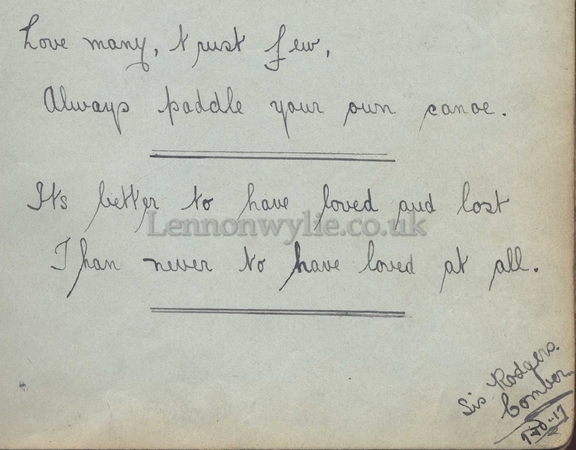 Love many, trust few,
Always paddle your own canoe.
Its better to have loved and lost
Lennonwylie.co.uk
Than never to have loved at all.
Sis Rodgers.
Comber.